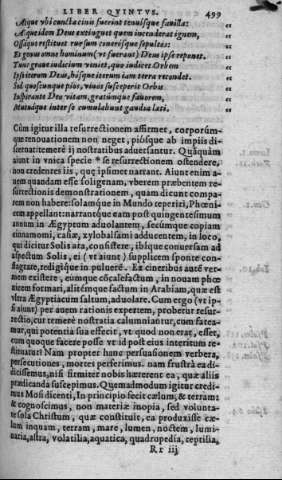 LIBER QUINTUS. 499
Atque ubi cuncta cinis fuerint tenuisque favilla:
Æque idem Deus extinguet quem incenderat ignem,
Ossaque restituet rursum cineresque sepultos:
Et genus omne hominum (ut fuerant) Deus ipse reponet.
Tunc grave iudicium veniet, quo iudicet Orbem
Ipsiterum Deus, hosque iterum iam terra recondet.
Sed quoscunque pios, vivis
Inspirante Deo vitam, gratumque favorem,
Mutuaque inter se cumulabunt gaudia læti.
Cùm igitur illa resurrectionem affirmet, corporum-
que renouationem non neget, piósque ab impiis di-
scernat: temerè ij nostratibus aduersantur. Quãquàm
aiunt in vnica specie * se resurrectionem ostendere,
non credentes iis, quę ipsimet narrant. Aiunt enim a-
uem quandam esse soligenam, vberem præbentem re-
surrectionis demonstrationem, quam dicunt compa-
rem non habere: solámque in Mundo reperiri, Phœni-
cem appellant: narrantque eam post quingentesimum
annum in Ægyptum aduolantem, secúmque copiam
cinnamomi, casiæ, xylobalsami adducentem, in loco,
qui dicitur Solis ara, consistere, ibíque conuersam ad
aspectum Solis, ei (vt aiunt) supplicem sponte con-
flagrare, redigíque in pulueré. Ex cineribus autẽ ver-
mem existere, eúmque cõcalefactum, in nouam phœ
nicem formari, alitémque factum in Arabiam, quæ est
vltra Ægyptiacum saltum, aduolare. Cum ergo (vt ip-
si aiunt) per auem rationis expertem, probetur resur-
rectio, cur temerè nostratia calumniantur, cùm fatea-
mur, qui potentia sua effecit, vt quod non erat, esset,
eum quoque facere posse vt id post eius interitum re-
stituatur? Nam propter hanc persuasionem verbera,
persecutiones, mortes perferimus. nam frustrà ea di-
dicissemus, nisi firmiter nobis hærerent ea, quæ aliis
prædicanda suscepimus. Quemadmodum igitur credi-
mus Mosi dicenti, In principio fecit cælum, & terram:
& cognoscimus, non materiæ inopia, sed volunta-
te sola Christum, quæ constituit, ea produxisse cæ-
lum inquam, terram, mare, lumen, noctem, lumi-
naria, astra, volatilia, aquatica, quadrupedia, reptilia,
Rr iij